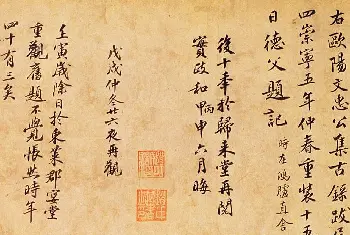 右歐陽文忠公集古錄跋尾
四崇寧五年仲春重裝十五
日德父題記
時在鴻臚直舍
後十年於歸來堂再閱
實政和丙申六月晦
戊戌仲冬廿六夜再觀
壬寅歲除日於東萊郡宴堂
重觀舊題不覺悵然時年
四十有三矣